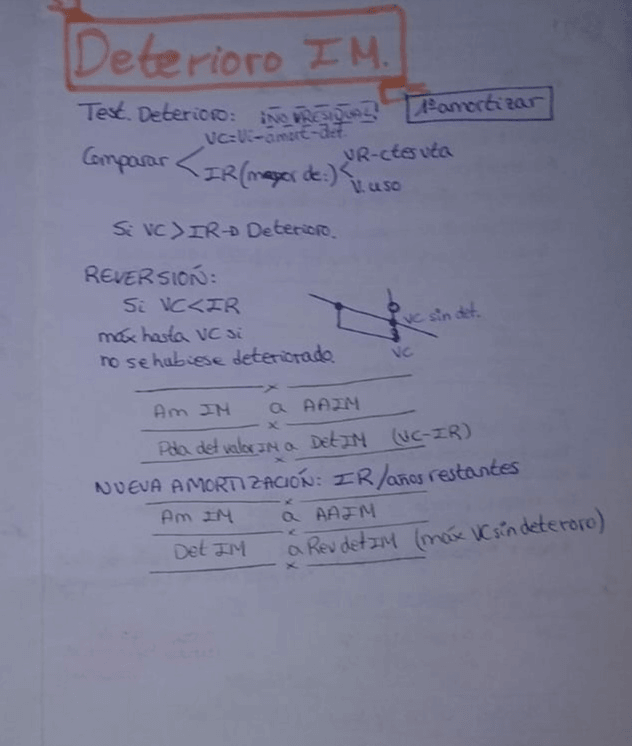 Deterioro IM.
Test. Deterioro: ¡NO VRESIDUAL! 1º amortizar
VC=Vi-amort-det.
Comparar < IR (mayor de:) < VR-ctes vta
V. uso
Si VC > IR → Deterioro.
REVERSIÓN:
Si VC < IR
máx hasta VC si
no se hubiese deteriorado.
VC sin det.
VC
x
Am IM a AAIM
x
Pda det valor IM a Det IM (VC-IR)
x
NUEVA AMORTIZACIÓN: IR/años restantes
x
Am IM a AAIM
x
Det IM a Rev det IM (máx VC sin deteroro)
x